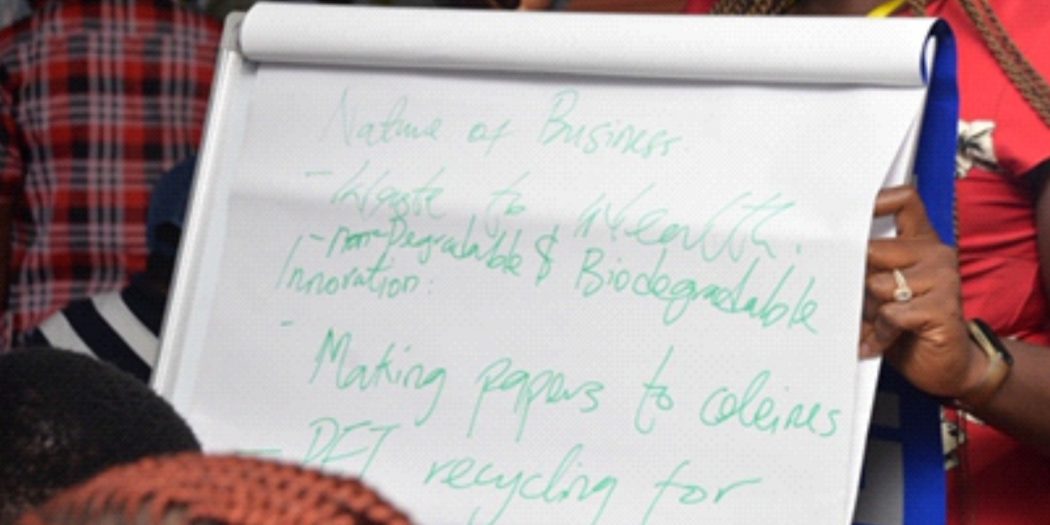 Nature of Business
- Waste to Wealth.
- non-Degradable & Biodegradable
Innovation:
- Making papers to
- PET recycling for